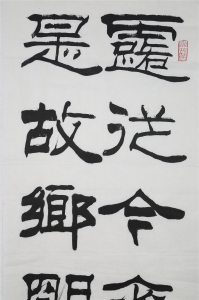 露從今夜
是故鄉明